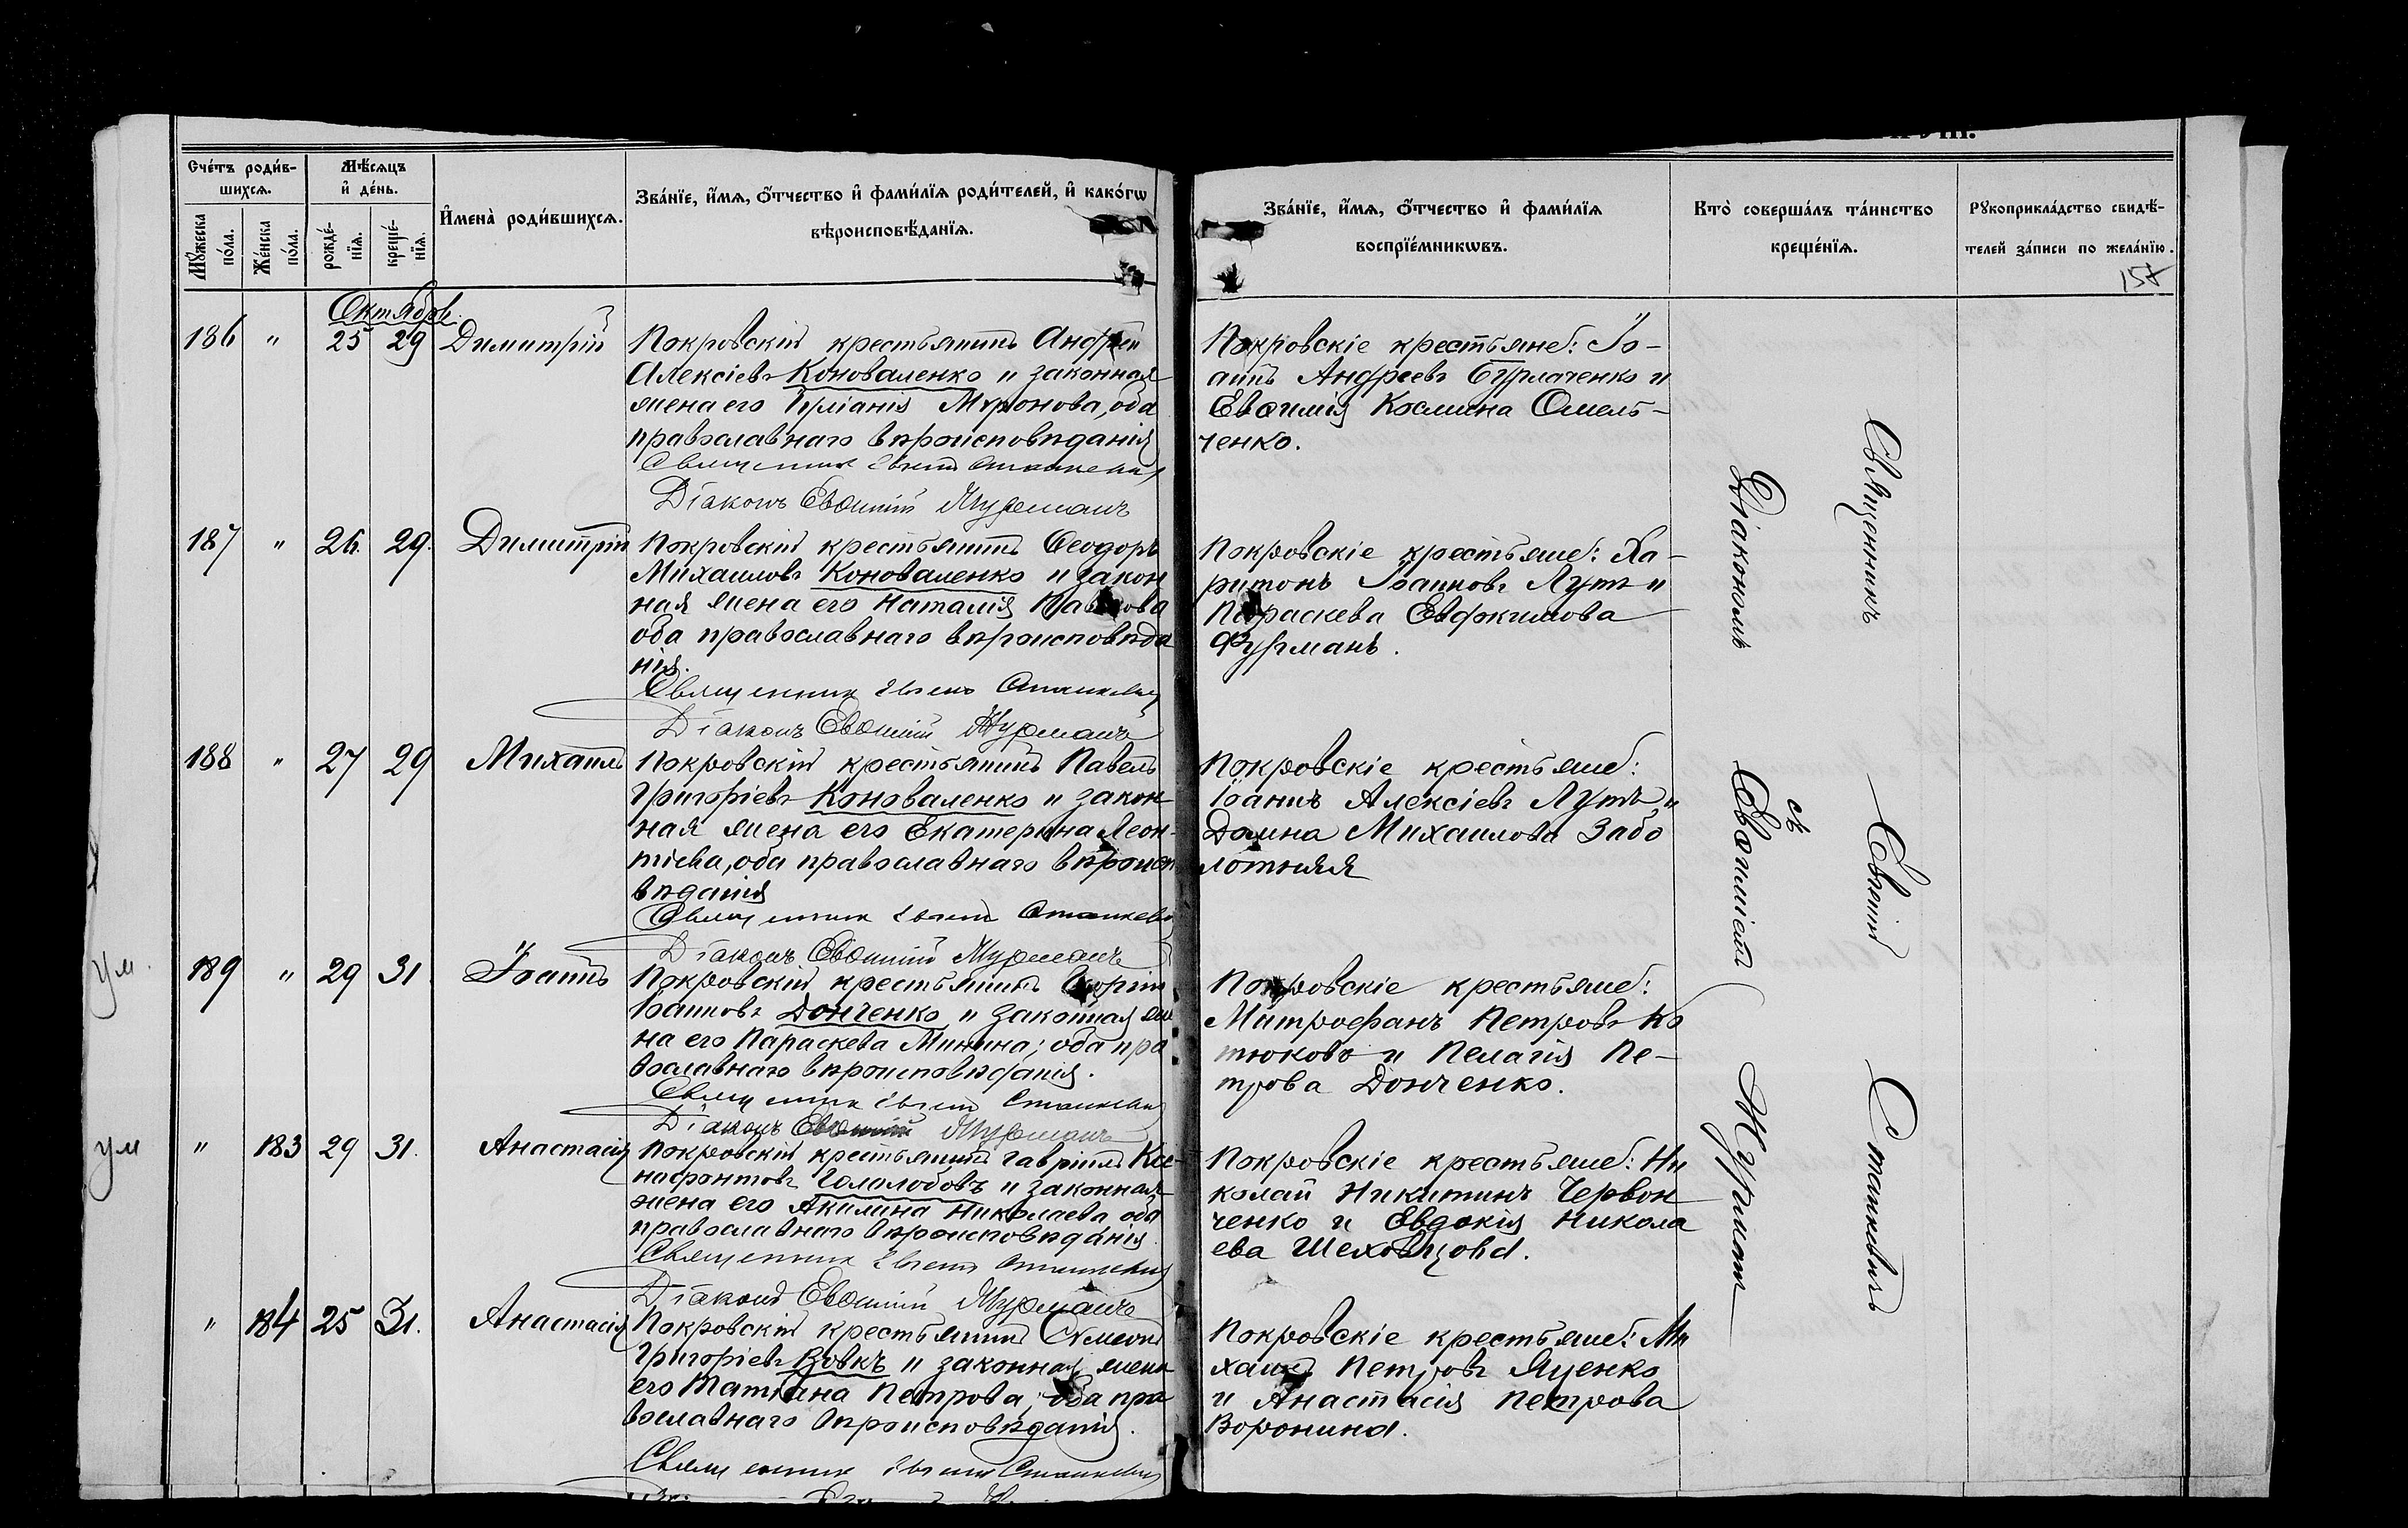 Счетъ родив-
шихся.
Мѣсяцъ
и день.
Мужеска
пола.
Женска
пола.
рожде-
нія.
креще-
нія.
Имена родившихся.
Званіе, имя, отчество и фамилія родителей, и какогѡ
вѣроисповѣданія.
Званіе, имя, отчество и фамилія
воспріемникѡвъ.
Кто совершалъ таинство
крещенія.
Рукоприкладство свидѣ-
телей записи по желанію.
Октябрь.
186 " 25 29 Димитрій
Покровскій крестьянинъ Андрей
Алексіевъ Коноваленко и законная
жена его Іуліанія Мѵронова, оба
православнаго вѣроисповѣданія
Священникъ Евгеній Станкевичъ
Діаконъ Евѳимій Журманъ
Покровскіе крестьяне: Іо-
аннъ Андреевъ Бурлаченко и
Евѳимія Космина Омель-
ченко.
187 " 26. 29. Димитрій
Покровскій крестьянинъ Ѳеодоръ
Михаиловъ Коноваленко и закон
ная жена его Наталія Павлова
оба православнаго вѣроисповѣда
нія.
Священникъ Евгеній Станкевичъ
Діаконъ Евѳимій Журманъ
Покровскіе крестьяне: Ха-
ритонъ Іоанновъ Лутъ и
Параскева Евфкимова
Фурманъ.
188 " 27 29 Михаилъ
Покровскій крестьянинъ Павелъ
Григоріевъ Коноваленко и закон
ная жена его Екатерина Леон-
тіева, оба православнаго вѣроиспо
вѣданія
Священникъ Евгеній Станкевичъ
Діаконъ Евѳимій Журманъ
Покровскіе крестьяне:
Іоаннъ Алексіевъ Лутъ и
Домна Михаилова Забо
лотняя
ум.
189 " 29 31 Іоаннъ
Покровскій крестьянинъ Георгій
Іоанновъ Донченко и законная же
на его Параскева Минина; оба пра
вославнаго вѣроисповѣданія.
Священникъ Евгеній Станкевичъ
Діаконъ Евѳимій Журманъ
Покровскіе крестьяне:
Митрофанъ Петровъ Ко
тюковъ и Пелагія Пе-
трова Донченко.
ум
" 183 29 31. Анастасія
Покровскій крестьянинъ Гавріилъ Ксе-
нафонтовъ Гололобовъ и законная
жена его Акилина Николаева оба
православнаго вѣроисповѣданія
Священникъ Евгеній Станкевичъ
Діаконъ Евѳимій Журманъ
Покровскіе крестьяне: Ни
колай Никитинъ Червон
ченко и Евдокія Никола
ева Шеховцова.
" 184 25 31. Анастасія
Покровскій крестьянинъ Сѵмеонъ
Григоріевъ Вовкъ и законная жена
его Татіана Петрова, оба пра
вославнаго вѣроисповѣданія.
Священникъ Евгеній Станкевичъ
Покровскіе крестьяне: Ми
хаилъ Петровъ Яценко
и Анастасія Петрова
Воронина.
Священникъ Евгеній Станкевичъ
съ
Діакономъ Евѳиміемъ Журман